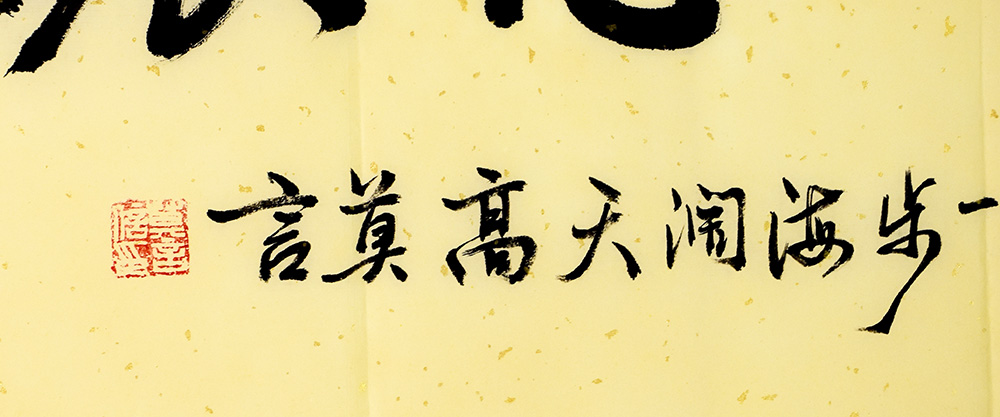 一步海濶天高莫言